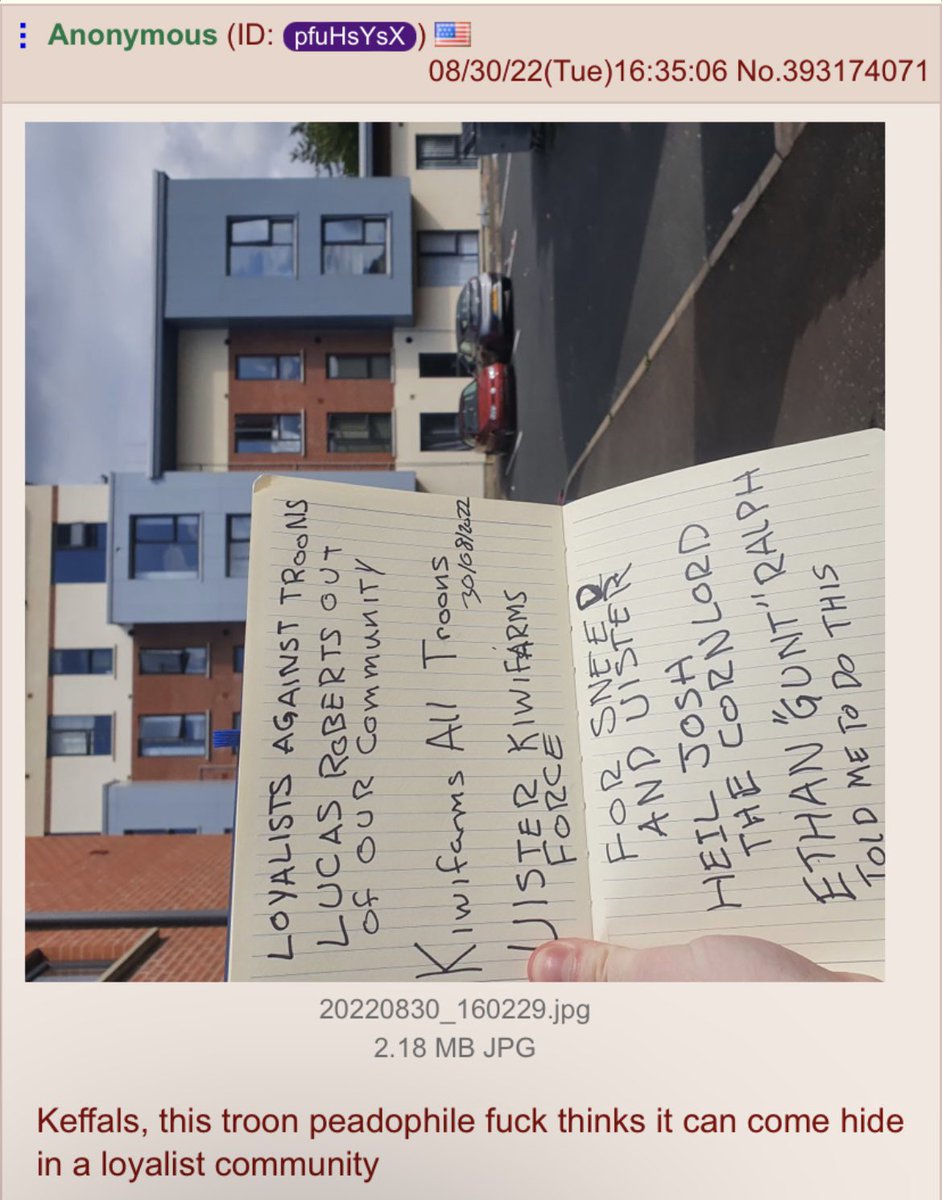 Anonymous (ID: pfuHsYsX)
08/30/22(Tue)16:35:06 No.393174071
LOYALISTS AGAINST TROONS
LUCAS ROBERTS OUT
OF OUR COMMUNITY
Kiwifarms All Troons
30/08/2022
UlSTER KIWIFARMS
FORCE
FOR SNEED
AND UlSTER
HEIL JOSH
THE CORNLORD
ETHAN "GUNT" RALPH
TOLD ME TO DO THIS
20220830_160229.jpg
2.18 MB JPG
Keffals, this troon peadophile fuck thinks it can come hide
in a loyalist community